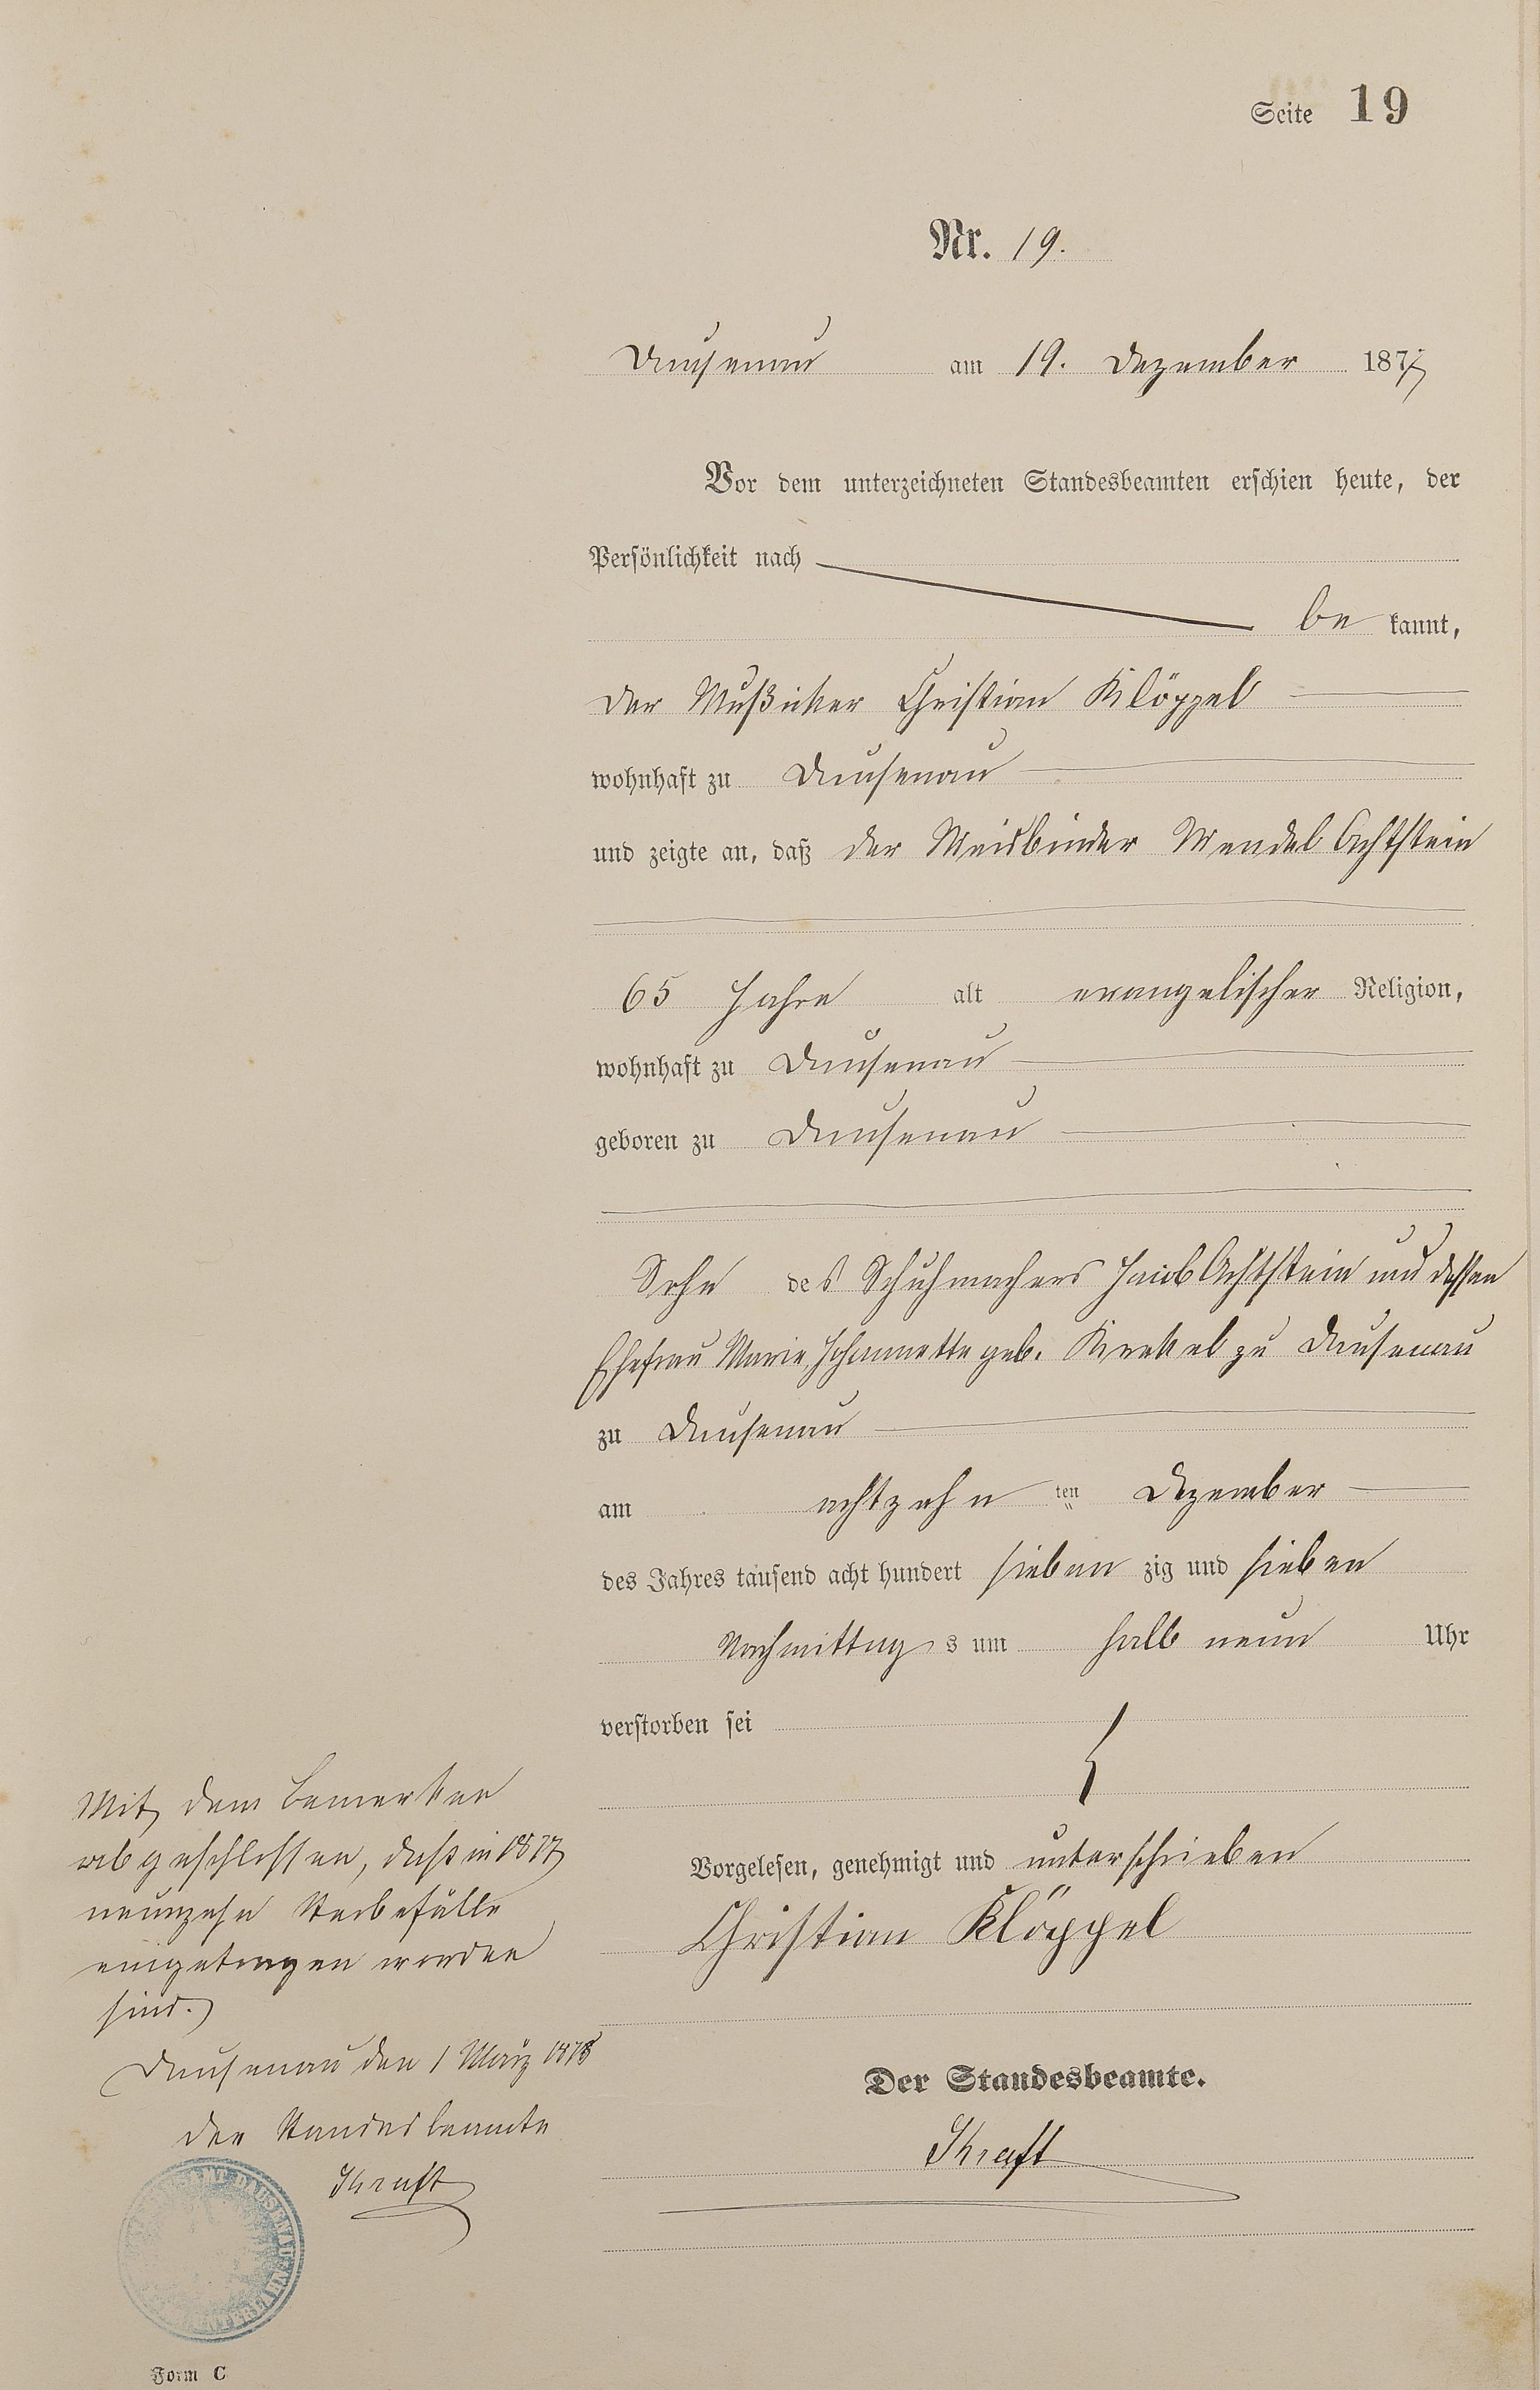 Seite 19
Nr. 19.
Dausenau am 19. Dezember 1877
Vor dem unterzeichneten Standesbeamten erschien heute, der
Persönlichkeit nach
be kannt,
der Mußiker Christian Klöppel
wohnhaft zu Dausenau
und zeigte an, daß der Wendel Achtstein
65 Jahre alt evangelischer Religion,
wohnhaft zu Dausenau
geboren zu Dausenau
Sohn des Schuhmachers Jacob Achtstein und dessen
Ehefrau Marie Johannette geb. Krekel zu Dausenau
zu Dausenau
am achtzehn ten Dezember
des Jahres tausend acht hundert sieben zig und sieben
Nachmittag s um halb neun Uhr
verstorben sei
Vorgelesen, genehmigt und unterschrieben
Christian Klöppel
Der Standesbeamte.
Kraft
Mit dem Bemerken
abgeschlossen, daß in 1877
neunzehn Sterbefälle
eingetragen worden
sind.
Dausenau den 1 März 1878
Der Standesbeamte
Kraft
Form C